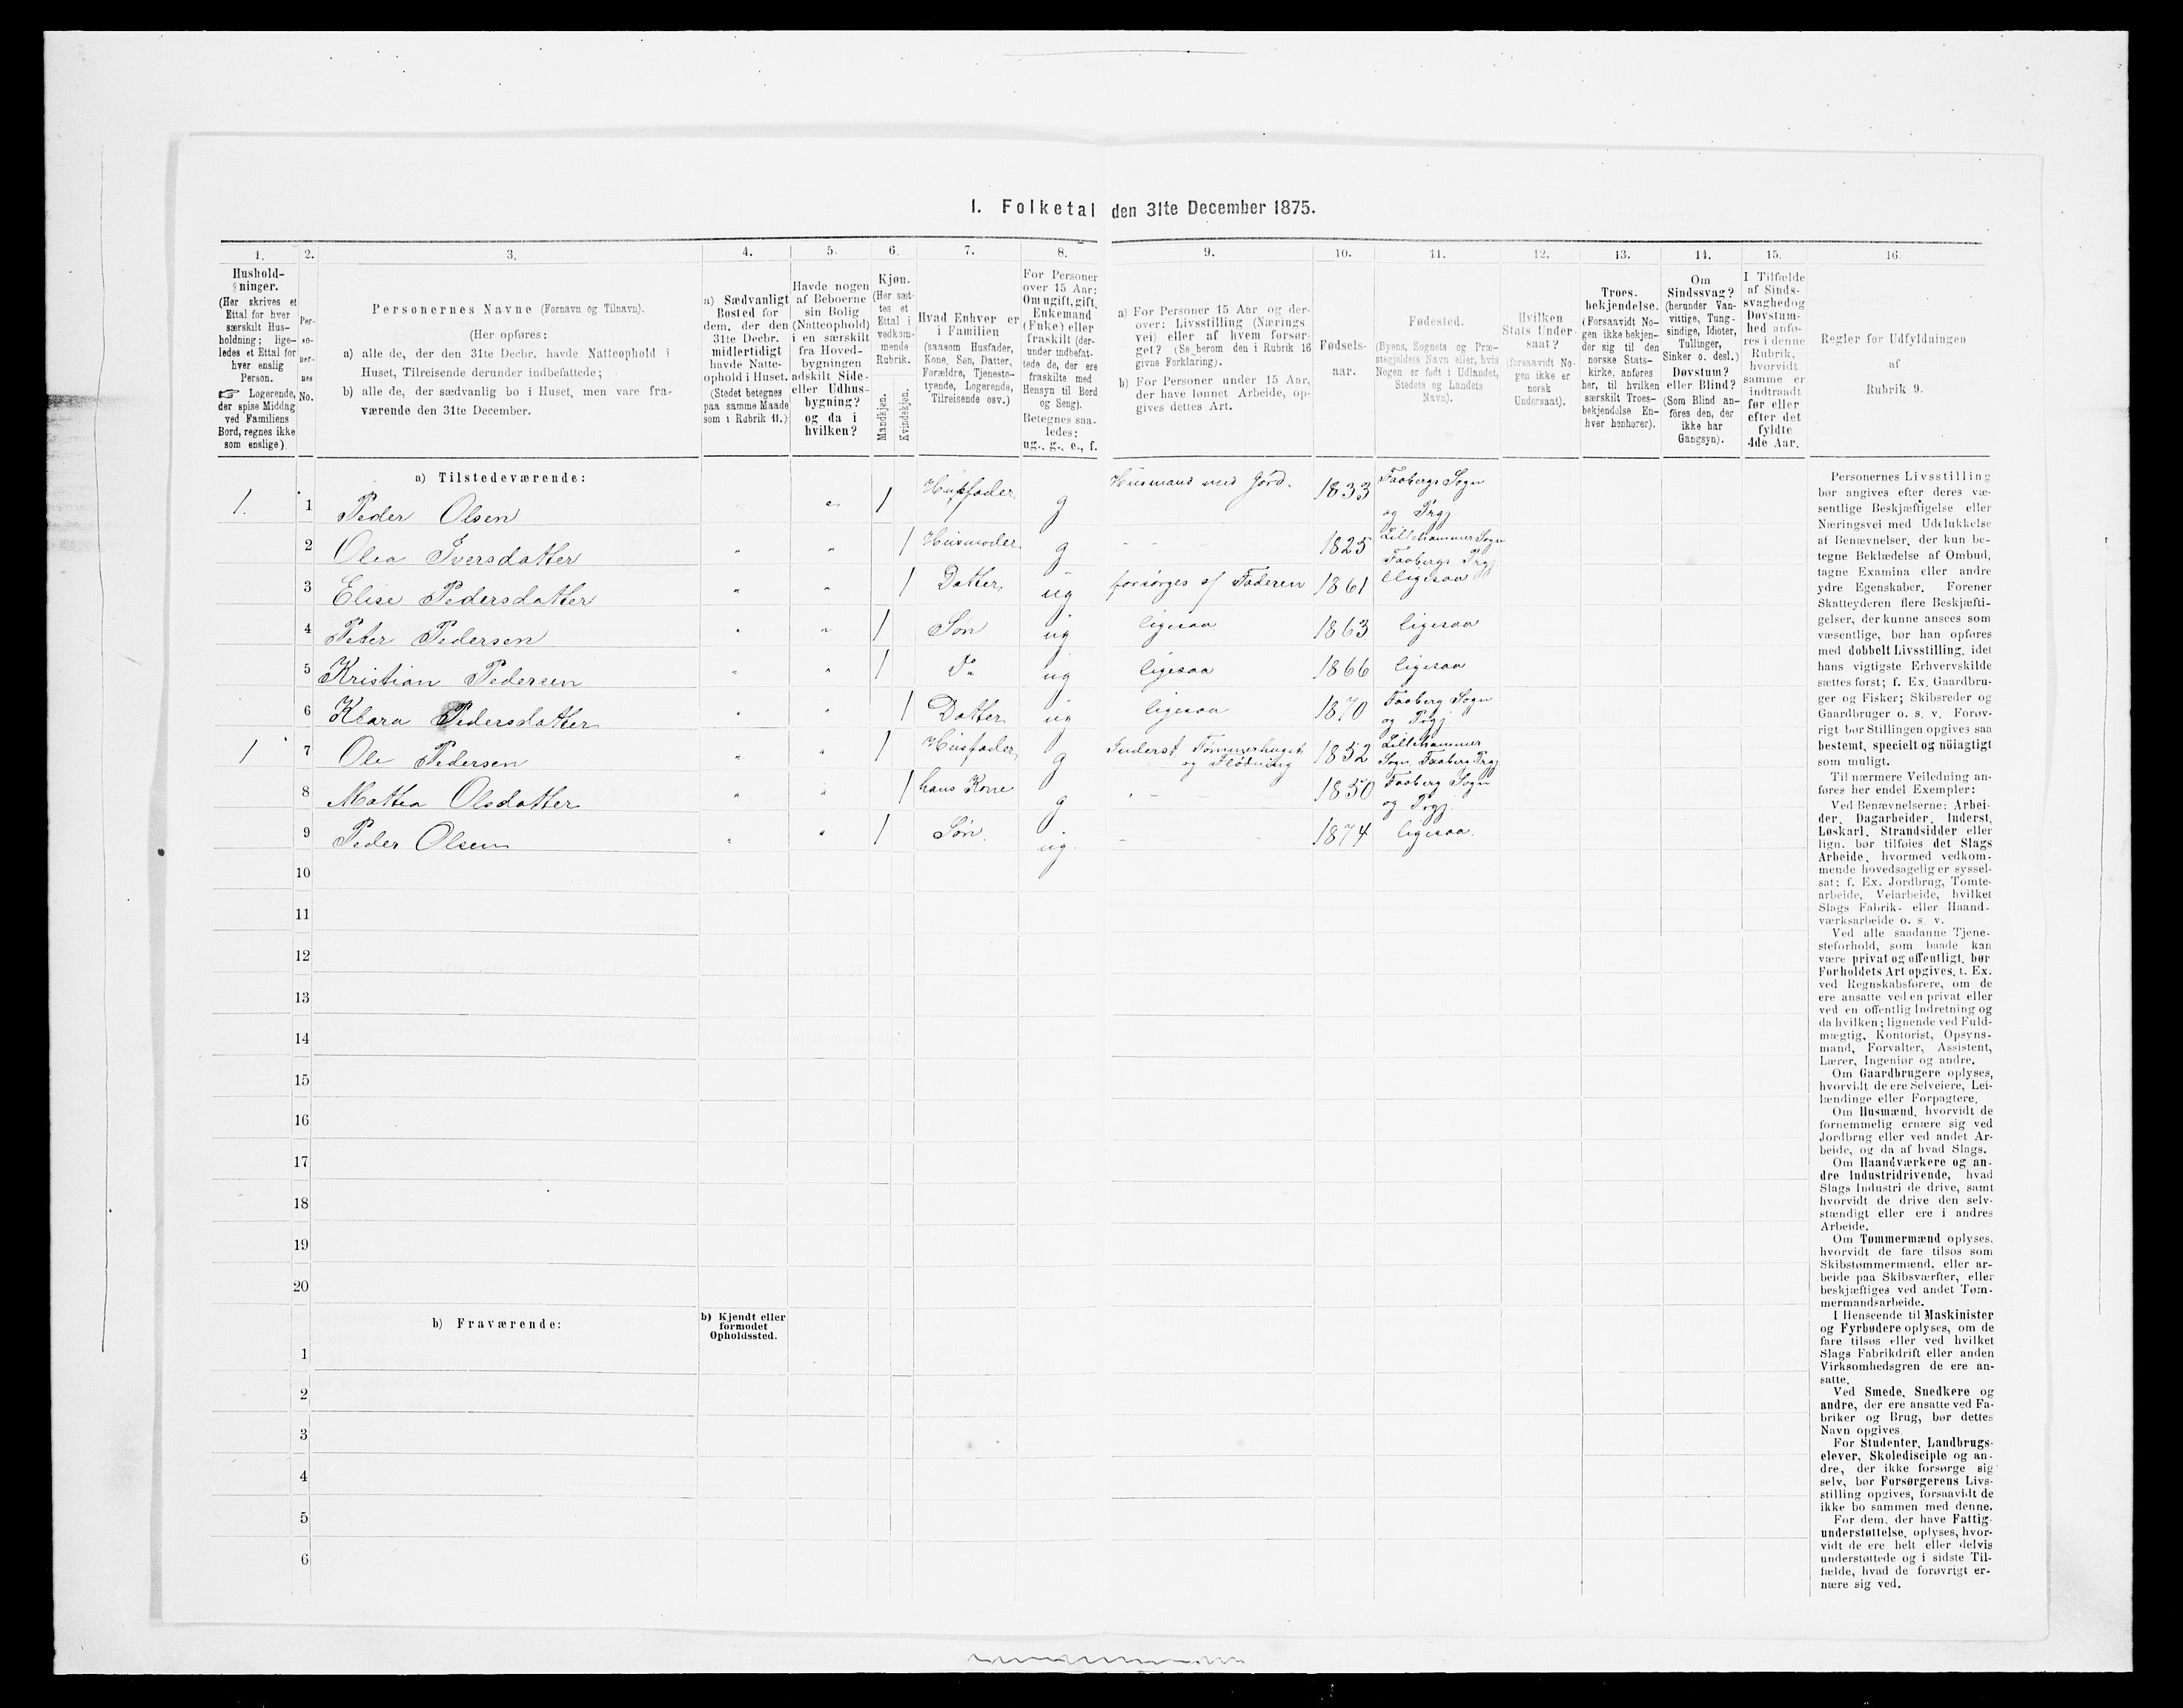 I. Folketal den 31te December 1875.
1. 2. 3. 4. 5. 6. 7. 8. 9. 10. 11. 12. 13. 14. 15. 16.
Hushold-
ninger.
(Her skrives et
Ettal for hver
særskilt Hus-
holdning; lige-
ledes et Ettal for
hver enslig
Person.
☞ Logerende,
der spise Middag
ved Familiens
Bord, regnes ikke
som enslige).
Per-
so-
ner-
nes
No.
Personernes Navne (Fornavn og Tilnavn).
(Her opføres:
a) alle de, der den 31te Decbr. havde Natteophold i
Huset, Tilreisende derunder indbefattede;
b) alle de, der sædvanlig bo i Huset, men vare fra-
værende den 31te December.
a) Sædvanligt
Bosted for
dem, der den
31te Decbr.
midlertidigt
havde Natte-
ophold i Huset.
(Stedet betegnes
paa samme Maade
som i Rubrik 11.)
Havde nogen
af Beboerne
sin Bolig
(Natteophold)
i en særskilt
fra Hoved-
bygningen
adskilt Side-
eller Udhus-
bygning?
og da i
hvilken?
Kjøn.
(Her sæt-
tes et
Ettal i
vedkom-
mende
Rubrik.
Mandkjøn.
Kvindekjøn.
Hvad Enhver er
i Familien
(saasom Husfader,
Kone, Søn, Datter,
Forældre, Tjeneste-
tyende, Logerende,
Tilreisende osv.)
For Personer
over 15 Aar:
Om ugift, gift,
Enkemand
(Enke) eller
fraskilt (der-
under indbefat-
tede de, der ere
fraskilte med
Hensyn til Bord
og Seng).
Betegnes saa-
ledes:
ug., g., e., f.
a) For Personer 15 Aar og der-
over: Livsstilling (Nærings
vei) eller af hvem forsør-
get? (Se herom den i Rubrik 16
givne Forklaring).
b) For Personer under 15 Aar,
der have lønnet Arbeide, op-
gives dettes Art.
Fødsels-
aar.
Fødested.
(Byens, Sognets og Præ-
stegjeldets Navn eller, hvis
Nogen er født i Udlandet,
Stedets og Landets
Navn).
Hvilken
Stats Under-
saat?
(forsaavidt No-
gen ikke er
norsk
Undersaat).
Troes-
bekjendelse.
(Forsaavidt No-
gen ikke bekjen-
der sig til den
norske Stats-
kirke, anføres
her, til hvilken
særskilt Troes-
bekjendelse En-
hver henhører).
Om
Sindssvag?
(herunder Van-
vittige, Tung-
sindige, Idioter,
Tullinger,
Sinker o. desl.)
Døvstum?
eller Blind?
(Som Blind an-
føres den, der
ikke har
Gangsyn).
I Tilfælde
af Sinds-
svaghed og
Døvstum-
hed anfø-
res i denne
Rubrik,
hvorvidt
samme er
indtraadt
før eller
efter det
fyldte
4de Aar.
Regler for Udfyldningen
af
Rubrik 9.
a) Tilstedeværende:
1. 1 Peder Olsen " 1 Husfader g Husmand med Jord. 1833 Faabergs Sogn
og Prgj.
2 Olea Iversdatter " " 1 Husmoder g 1825 Lillehammer Sogn
Faabergs Prgj
3 Elise Pedersdatter " " 1 Datter ug forsørges af Faderen 1861 ligesaa
4 Peter Pedersen " " 1 Søn ug ligesaa 1863 ligesaa
5 Kristian Pedersen " " 1 do ug ligesaa 1866 ligesaa
6 Klara Pedersdatter " " 1 Datter ug ligesaa 1870 Faaberg Sogn
og Prgj
1 7 Ole Pedersen " " 1 Husfader g Inderst Tømmerhugst
og Flødning 1852 Lillehammer
Sogn, Faaberg Prgj
8 Mathea Olsdatter " " 1 hans Kone g 1850 Faaberg Sogn
og Prgj.
9 Peder Olsen " " 1 Søn. ug. 1874 ligesaa.
10
11
12
13
14
15
16
17
18
19
20
b) Fraværende:
b) Kjendt eller
formodet
Opholdssted.
1
2
3
4
5
6
Personernes Livsstilling
bør angives efter deres væ-
sentlige Beskjæftigelse eller
Næringsvei med Udelukkelse
af Benævnelser, der kun be-
tegne Beklædelse af Ombud,
tagne Examina eller andre
ydre Egenskaber. Forener
Skatteyderen flere Beskjæfti-
gelser, der kunne ansees som
væsentlige, bør han opføres
med dobbelt Livsstilling, idet
hans vigtigste Erhvervskilde
sættes først; f. Ex. Gaardbru-
ger og Fisker; Skibsreder og
Gaardbruger o. s. v. Forøv-
rigt bør Stillingen opgives saa
bestemt, specielt og nøiagtigt
som muligt.
Til nærmere Veiledning an-
føres her endel Exempler:
Ved Benævnelserne: Arbei-
der, Dagarbeider, Inderst,
Løskarl, Strandsidder eller
lign. bør tilføies det Slags
Arbeide, hvormed vedkom-
mende hovedsagelig er syssel-
sat; f. Ex. Jordbrug, Tomte-
arbeide, Veiarbeide, hvilket
Slags Fabrik- eller Haand-
værksarbeide o. s. v.
Ved alle saadanne Tjene-
steforhold, som baade kan
være privat og offentligt, bør
Forholdets Art opgives, t. Ex.
ved Regnskabsførere, om de
ere ansatte ved en privat eller
ved en offentlig Indretning og
da hvilken; lignende ved Fuld-
mægtig, Kontorist, Opsyns-
mand, Forvalter, Assistent,
Lærer, Ingeniør og andre.
Om Gaardbrugere oplyses,
hvorvidt de ere Selveiere, Lei-
lændinge eller Forpagtere.
Om Husmænd, hvorvidt de
fornemmelig ernære sig ved
Jordbrug eller ved andet Ar-
beide, og da af hvad Slags.
Om Haandværkere og an-
dre Industridrivende, hvad
Slags Industri de drive, samt
hvorvidt de drive den selv-
stændigt eller ere i andres
Arbeide.
Om Tømmermænd oplyses,
hvorvidt de fare tilsøs som
Skibstømmermænd, eller ar-
beide paa Skibsværfter, eller
beskjæftiges ved andet Tøm-
mermandsarbeide.
I Henseende til Maskinister
og Fyrbødere oplyses, om de
fare tilsøs eller ved hvilket
Slags Fabrikdrift eller anden
Virksomhedsgren de ere an-
satte.
Ved Smede, Snedkere og
andre, der ere ansatte ved Fa-
briker og Brug, bør dettes
Navn opgives.
For Studenter, Landbrugs-
elever, Skoledisciple og an-
dre, der ikke forsørge sig
selv, bør Forsørgerens Livs-
stilling opgives, forsaavidt de
ikke bo sammen med denne.
For dem, der have Fattig-
understøttelse, oplyses, hvor-
vidt de ere helt eller delvis
understøttede og i sidste Til-
fælde, hvad de forøvrigt er-
nære sig ved.